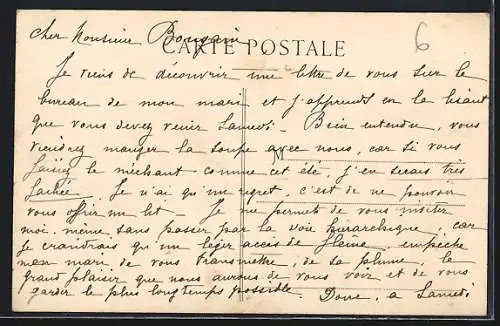 cher Monsieur Bougain
CARTE POSTALE
6
Je viens de découvrir une lettre de vous sur le
bureau de mon mari et j'apprends en la lisant
que vous devez venir Samedi - Bien entendu, vous
viendrez manger la soupe avec nous, car si vous
M
faisiez le méchant comme cet été, j'en serais très
fachée. Je n'ai qu'un regret, c'est de ne pouvoir
vous offrir un lit - Je me permets de vous inviter
moi-même, sans passer par la voie hiérarchique, car
je craindrais qu'un léger accès de flême, empêche
mon mari de vous transmettre, de sa plume, le
grand plaisir que nous aurons de vous voir et de vous
garder le plus longtemps possible. Donc, a Samedi